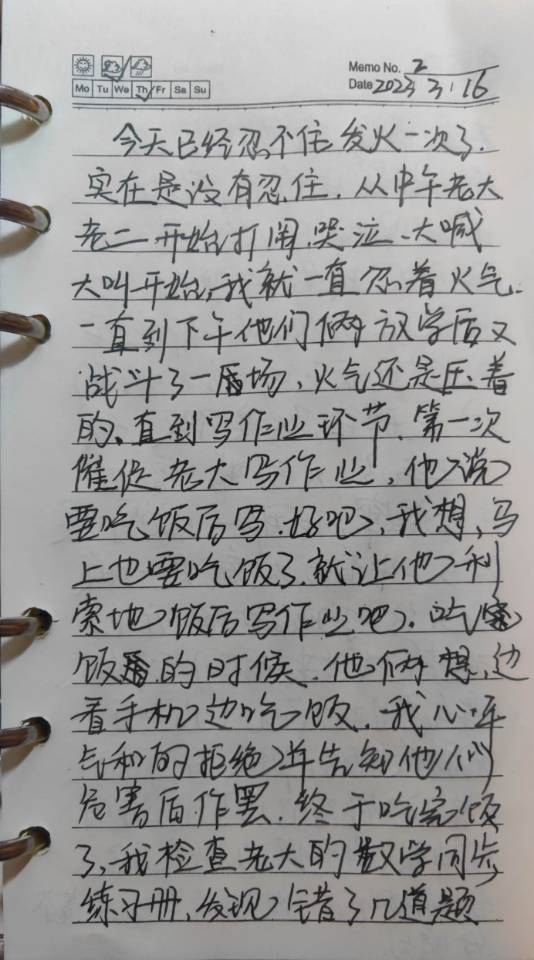 Memo No. 2
Mo Tu We Th Fr Sa Su
Date 2023 3.16
今天已经忍不住发火一次了.
实在是没有忍住.从中午老大
老二开始打闹、哭泣、大喊
大叫开始,我就一直忍着火气.
一直到下午他们俩放学后又
战斗了一场,火气还是压着
的、直到写作业环节.第一次
催促老大写作业,他说
要吃饭后写.好吧,我想,马
上也要吃饭了.就让他利
索地饭后写作业吧.吃
饭的时候.他俩想边
看手机边吃饭,我心平
气和的拒绝并告知他们
危害后作罢.终于吃完饭
了,我检查老大的数学同步
练习册,发现错了几道题